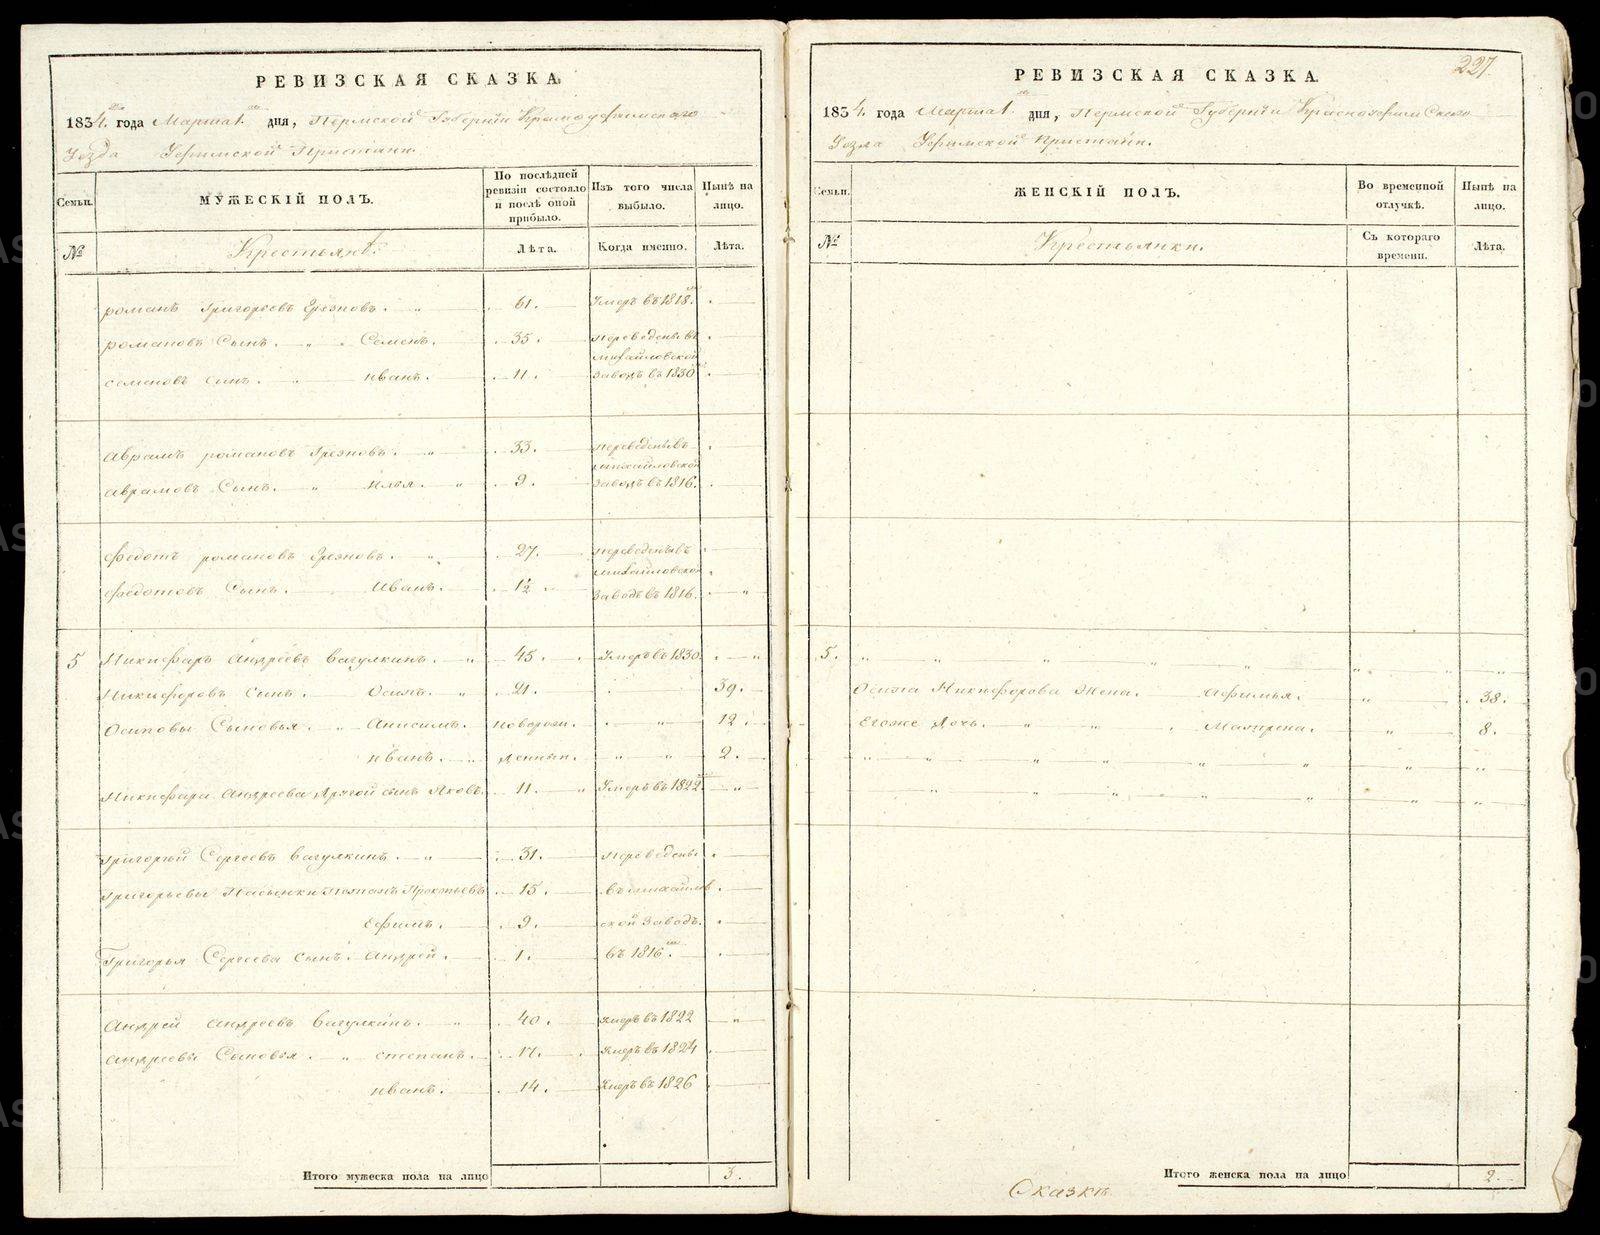 РЕВИЗСКАЯ СКАЗКА.
1834. года Марта 1. дня, Пермской Губерніи Красноуфимскаго
Уезда Уфимской Пристани.
Семьи. МУЖЕСКІЙ ПОЛЪ. По послѣдней ревизіи состояло и послѣ оной прибыло. Изъ того числа выбыло. Нынѣ на лицо.
№ Крестьянѣ. Лѣта. Когда именно. Лѣта.
романъ Григорьевъ 61. Умеръ въ 1818.
романовъ Сынъ. Семенъ. 35. Переведены въ
Михайловской
семеновъ сынъ. иванъ. 11. Заводъ въ 1830
аврамъ романовъ 33. Переведены въ
Михайловской
аврамовъ Сынъ. илья. 9. Заводъ въ 1816.
федотъ романовъ 27. Переведены въ
Михайловской
федотовъ Сынъ. Иванъ. 1½ Заводъ въ 1816.
5 Никифаръ Андреевъ Вагулкинъ. 45. Умеръ въ 1830.
Никифоровъ Сынъ. Осипъ. 21. 39.
Осиповы Сыновья. Анисимъ. новорож. 12.
иванъ. денныи. 2.
Никифара Андреева Другой сынъ Яковъ. 11. Умеръ въ 1822.
григорій Сергеевъ вагулкинъ. 31. Переведены
григорьевы Пасынки Прокопьевъ 15. въ михайлов
Ефимъ. 9. ской Заводъ.
Григорья Сергеева сынъ. Андрей. 1. въ 1816.
Андрей андреевъ Вагулкинъ. 40. умеръ въ 1822
андреевы Сыновья. степанъ. 17. умеръ въ 1824
иванъ. 14. умеръ въ 1826
Итого мужеска пола на лицо 3.
227.
РЕВИЗСКАЯ СКАЗКА.
1834. года Марта 1. дня, Пермской Губерніи Красноуфимскаго
Уезда Уфимской Пристани.
Семьи. ЖЕНСКІЙ ПОЛЪ. Во временной отлучкѣ. Нынѣ на лицо.
№ Крестьянки. Съ котораго времени. Лѣта.
5.
Осипа Никифорова Жена. Афимья. 38.
Егоже дочь. Матрена. 8.
Итого женска пола на лицо 2.
Сказкѣ